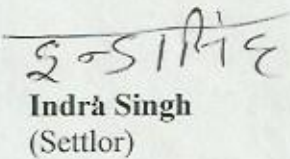 इन्द्रा सिंह
Indrà Singh
(Settlor)